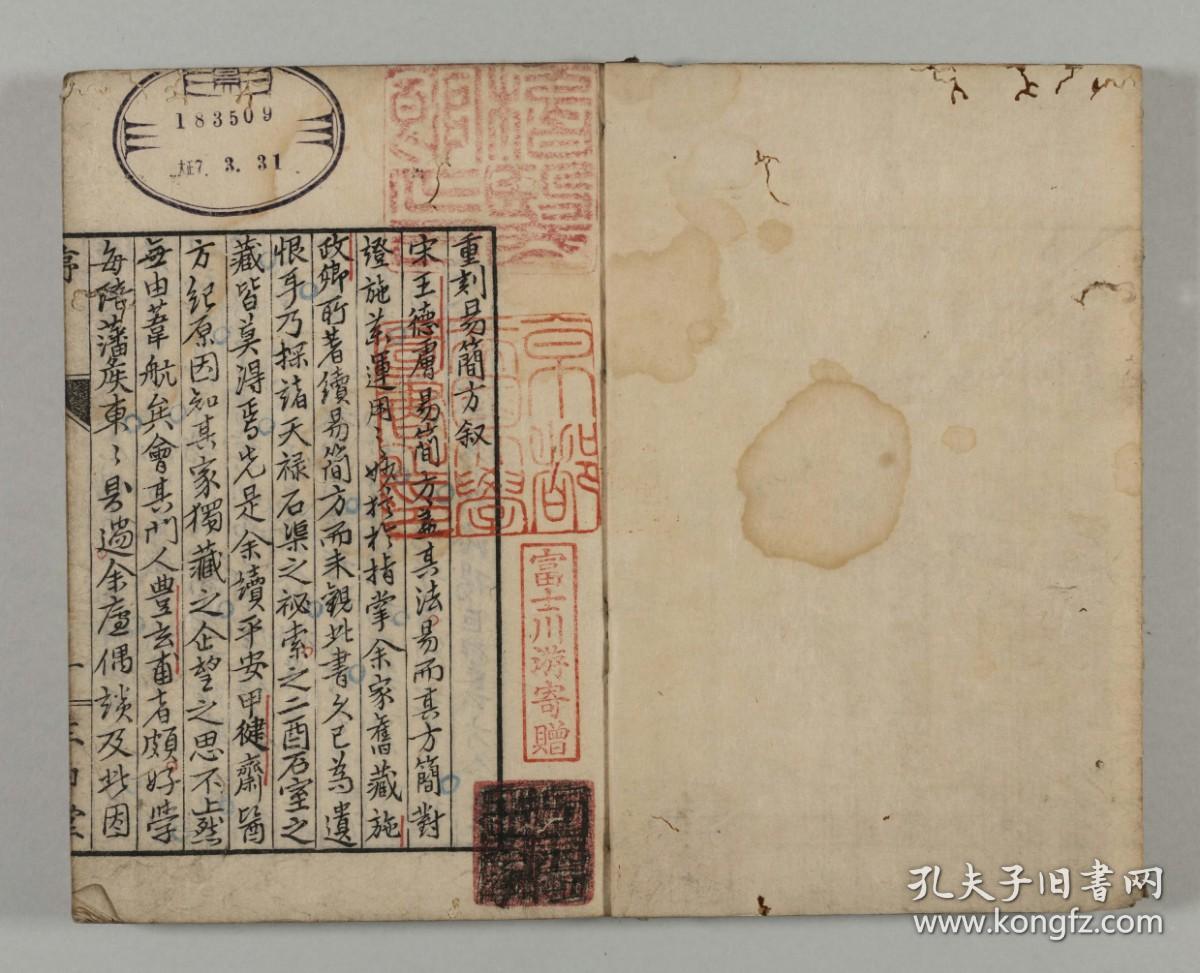 重刻易簡方叙
宋王德膚易簡方盖其法易而其方簡對
證施藥運用之妙猶於指掌余家舊藏施
政卿所著續易簡方而未觀此書久已為遺
恨耳乃探諸天禄石渠之祕索之二酉石室之
藏皆莫得焉先是余讀平安甲健齋醫
方紀原因知其家獨藏之企望之思不止然
無由葦航矣會其門人豊玄甫者頗好學
每陪藩侯東〻具過余廬偶談及此因
序
一
183509
大正7. 3. 31
京都
富士川游寄贈
孔夫子旧书网
www.kongfz.com